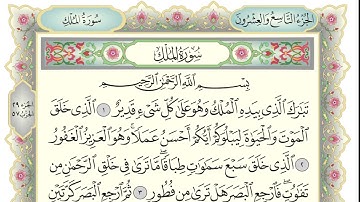 الجزء التاسع والعشرون
سورة الملك
سُورَةُ المُلْكِ
الجزء ٢٩
الحزب ٥٧
بِسْمِ اللَّهِ الرَّحْمَٰنِ الرَّحِيمِ
تَبَارَكَ الَّذِي بِيَدِهِ الْمُلْكُ وَهُوَ عَلَىٰ كُلِّ شَيْءٍ قَدِيرٌ ١ الَّذِي خَلَقَ
الْمَوْتَ وَالْحَيَوٰةَ لِيَبْلُوَكُمْ أَيُّكُمْ أَحْسَنُ عَمَلًا وَهُوَ الْعَزِيزُ الْغَفُورُ
٢ الَّذِي خَلَقَ سَبْعَ سَمَٰوَٰتٍ طِبَاقًا مَّا تَرَىٰ فِي خَلْقِ الرَّحْمَٰنِ مِن
تَفَٰوُتٍ فَارْجِعِ الْبَصَرَ هَلْ تَرَىٰ مِن فُطُورٍ ٣ ثُمَّ ارْجِعِ الْبَصَرَ كَرَّتَيْنِ